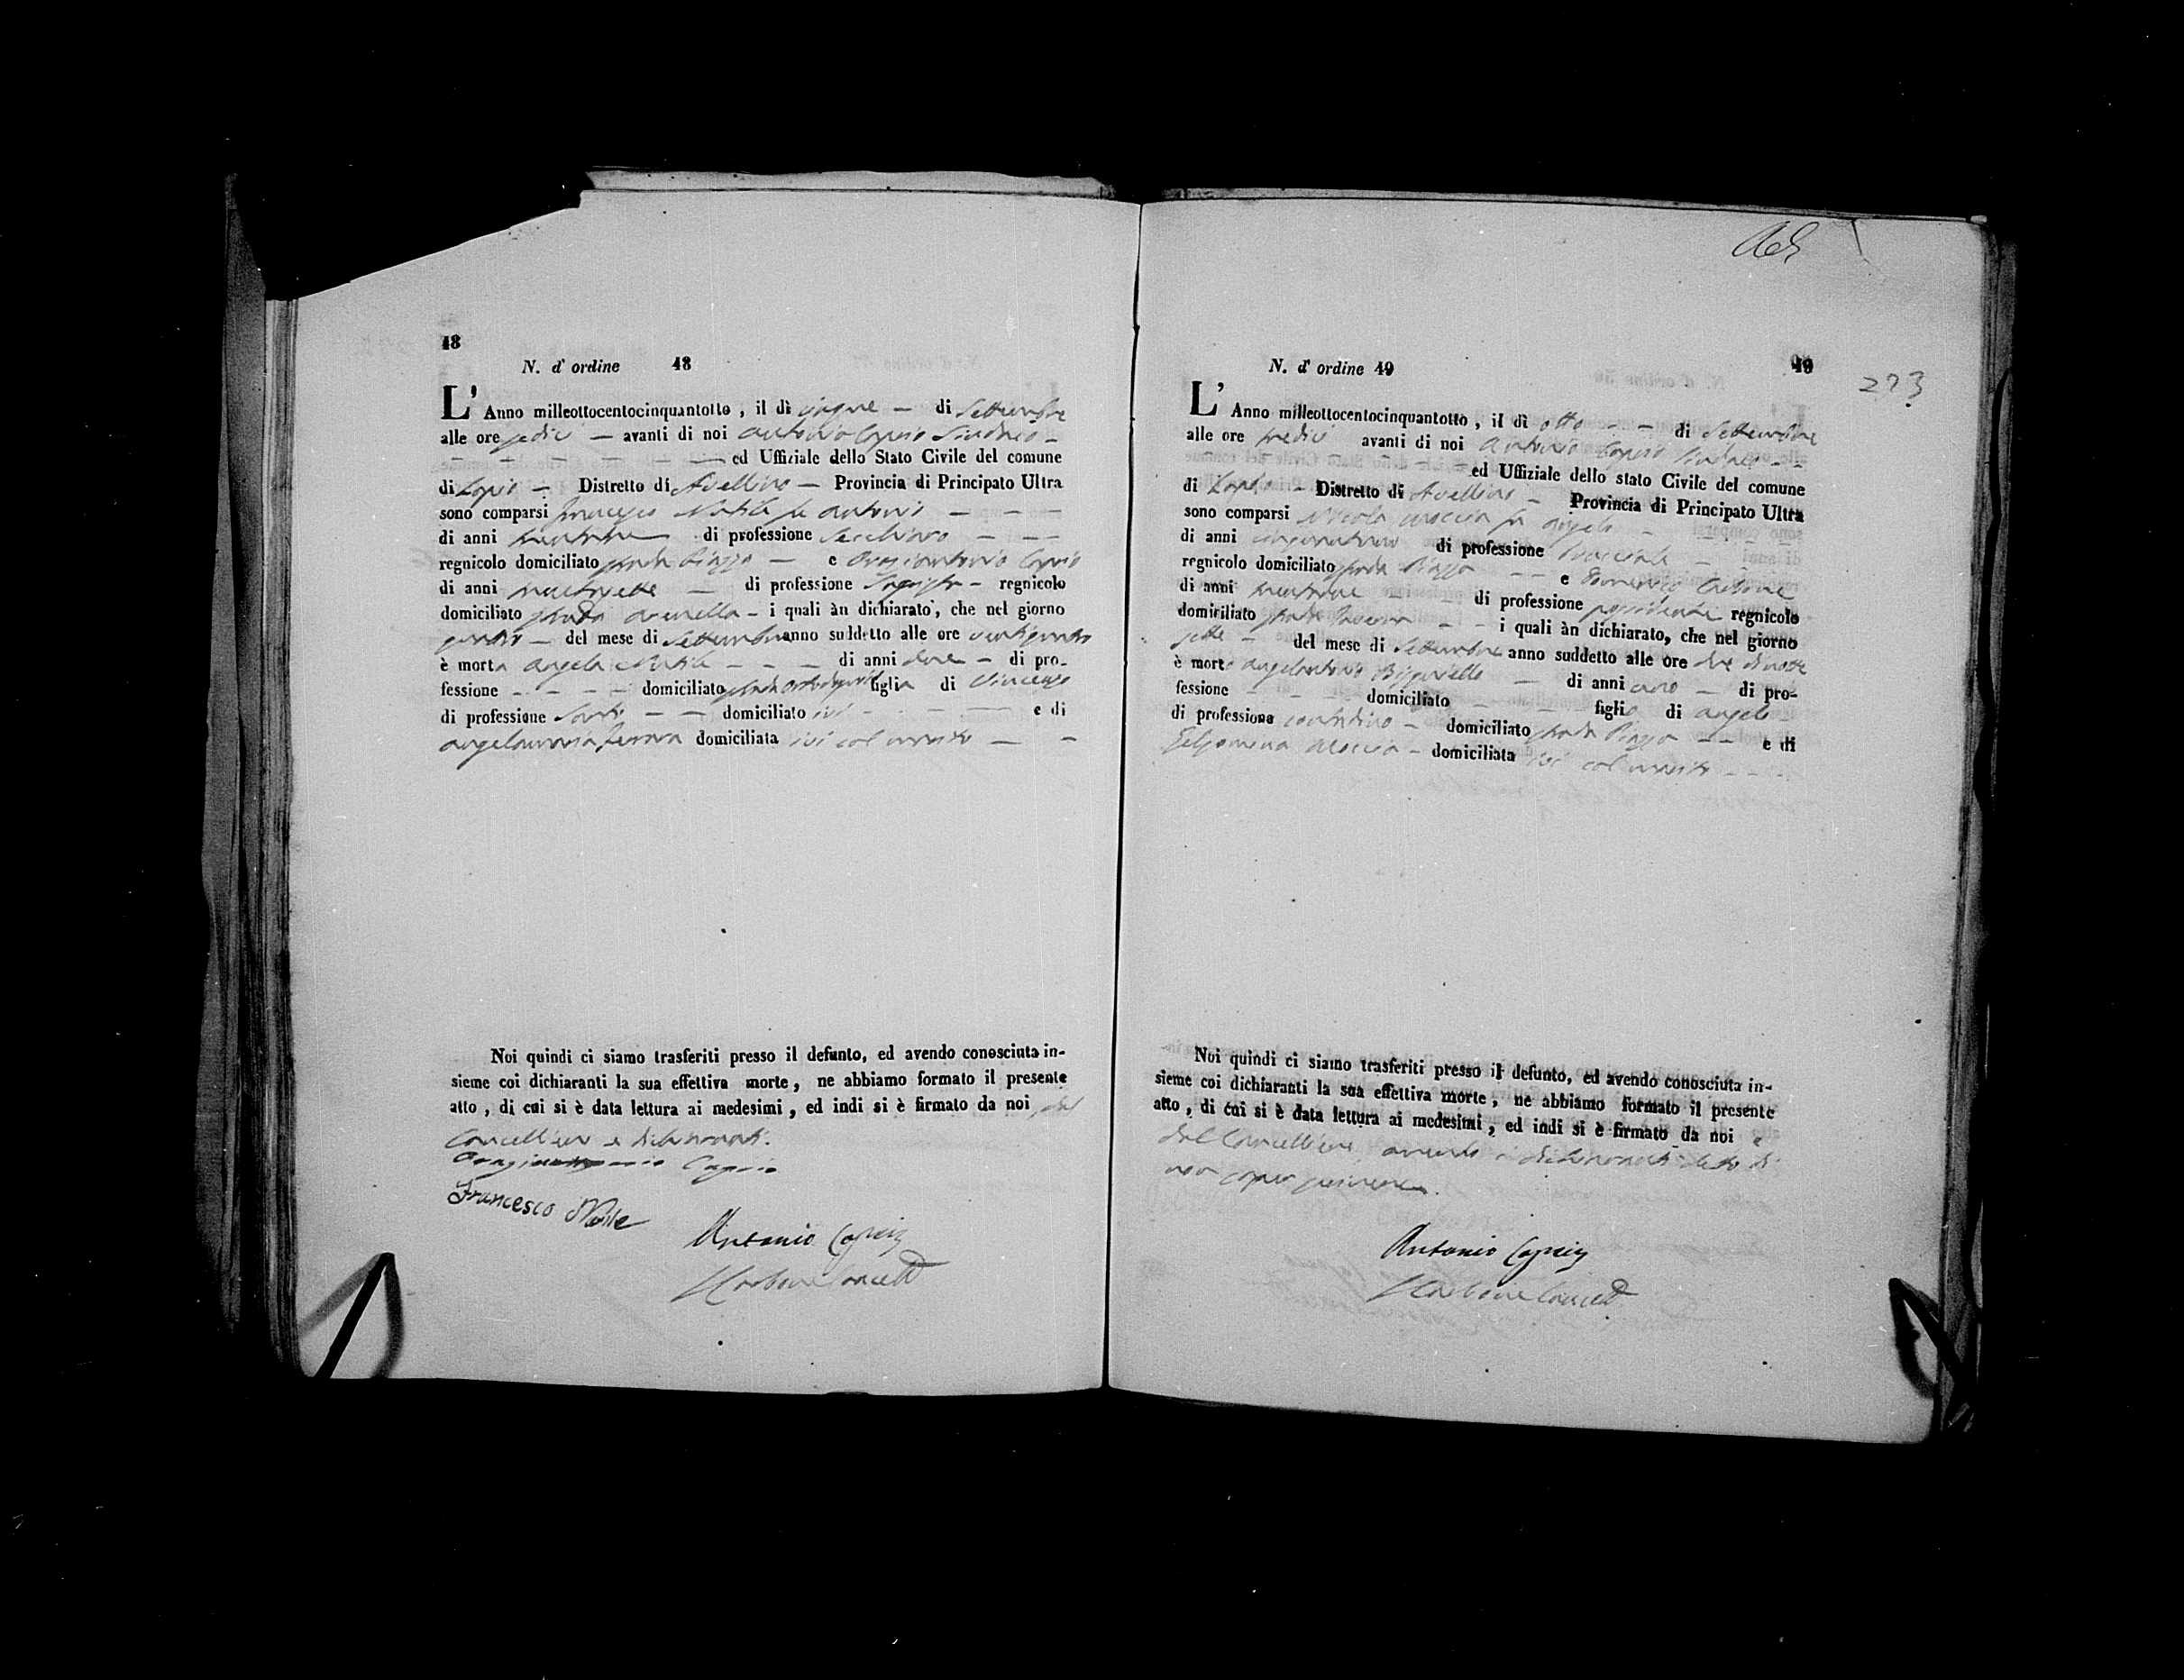 48
N. d' ordine 48
L' Anno milleottocentocinquantotto, il dì cinque — di Settembre
alle ore sedici — avanti di noi Antonio Caprio Sindaco —
ed Uffiziale dello Stato Civile del comune
di Lapio — Distretto di Avellino — Provincia di Principato Ultra
sono comparsi Francesco Natile fu Antonio — — —
di anni di professione — —
regnicolo domiciliato strada Piazza — e Oraziantonio Caprio
di anni trentasette — di professione Sagrista — regnicolo
domiciliato strada — i quali àn dichiarato, che nel giorno
quattro — del mese di Settembre anno suddetto alle ore ventiquattro
è morta Angela Natile — — — di anni — di pro-
fessione — — — — domiciliato strada figlia di Vincenzo
di professione Sarto — — domiciliato ivi — — e di
Angelamaria Ferrara domiciliata ivi col marito — —
Noi quindi ci siamo trasferiti presso il defunto, ed avendo conosciuta in-
sieme coi dichiaranti la sua effettiva morte, ne abbiamo formato il presente
atto, di cui si è data lettura ai medesimi, ed indi si è firmato da noi, dal
Cancelliere e dichiaranti.
Caprio
Francesco Natile
Antonio Caprio
Carbone Cancell
273
49
N. d' ordine 49
L' Anno milleottocentocinquantotto, il dì otto — — di Settembre
alle ore tredici avanti di noi Antonio Caprio Sindaco — —
ed Uffiziale dello stato Civile del comune
di Lapio — Distretto di Avellino — Provincia di Principato Ultra
sono comparsi Nicola Moccia fu Angelo —
di anni di professione —
regnicolo domiciliato strada Piazza — — e Domenico Carbone
di anni di professione possidente regnicolo
domiciliato strada — — i quali àn dichiarato, che nel giorno
sette — del mese di Settembre anno suddetto alle ore due di notte
è morto Angelantonio — di anni uno — di pro-
fessione — — — domiciliato — figlio di Angelo
di professione contadino — domiciliato strada Piazza — — e di
Filomena Moccia — domiciliata ivi col marito — — —
Noi quindi ci siamo trasferiti presso il defunto, ed avendo conosciuta in-
sieme coi dichiaranti la sua effettiva morte, ne abbiamo formato il presente
atto, di cui si è data lettura ai medesimi, ed indi si è firmato da noi e
dal Cancelliere avendo i dichiaranti detto di
non saper scrivere.
Antonio Caprio
Carbone Cancell